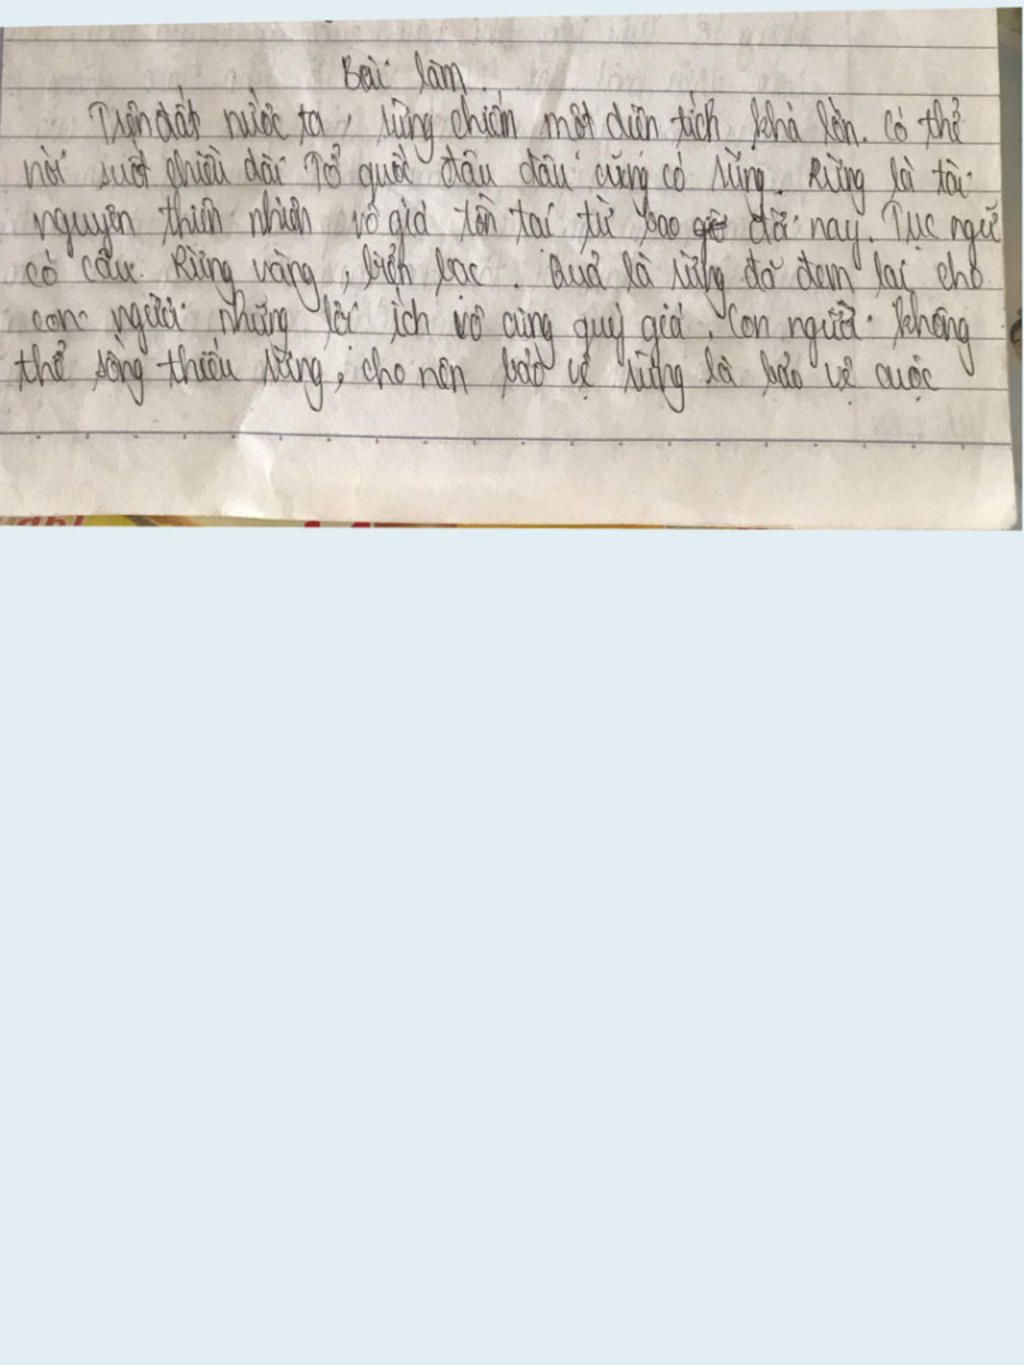 Bài làm.
Trên đất nước ta, rừng chiếm một diện tích khá lớn. Có thể
nói suốt chiều dài Tổ quốc đâu đâu cũng có rừng. Rừng là tài
nguyên thiên nhiên vô giá tồn tại từ bao đời nay. Tục ngữ
có câu: Rừng vàng, biển bạc. Quả là rừng đã đem lại cho
con người những lợi ích vô cùng quý giá. Con người không
thể sống thiếu rừng, cho nên bảo vệ rừng là bảo vệ cuộc